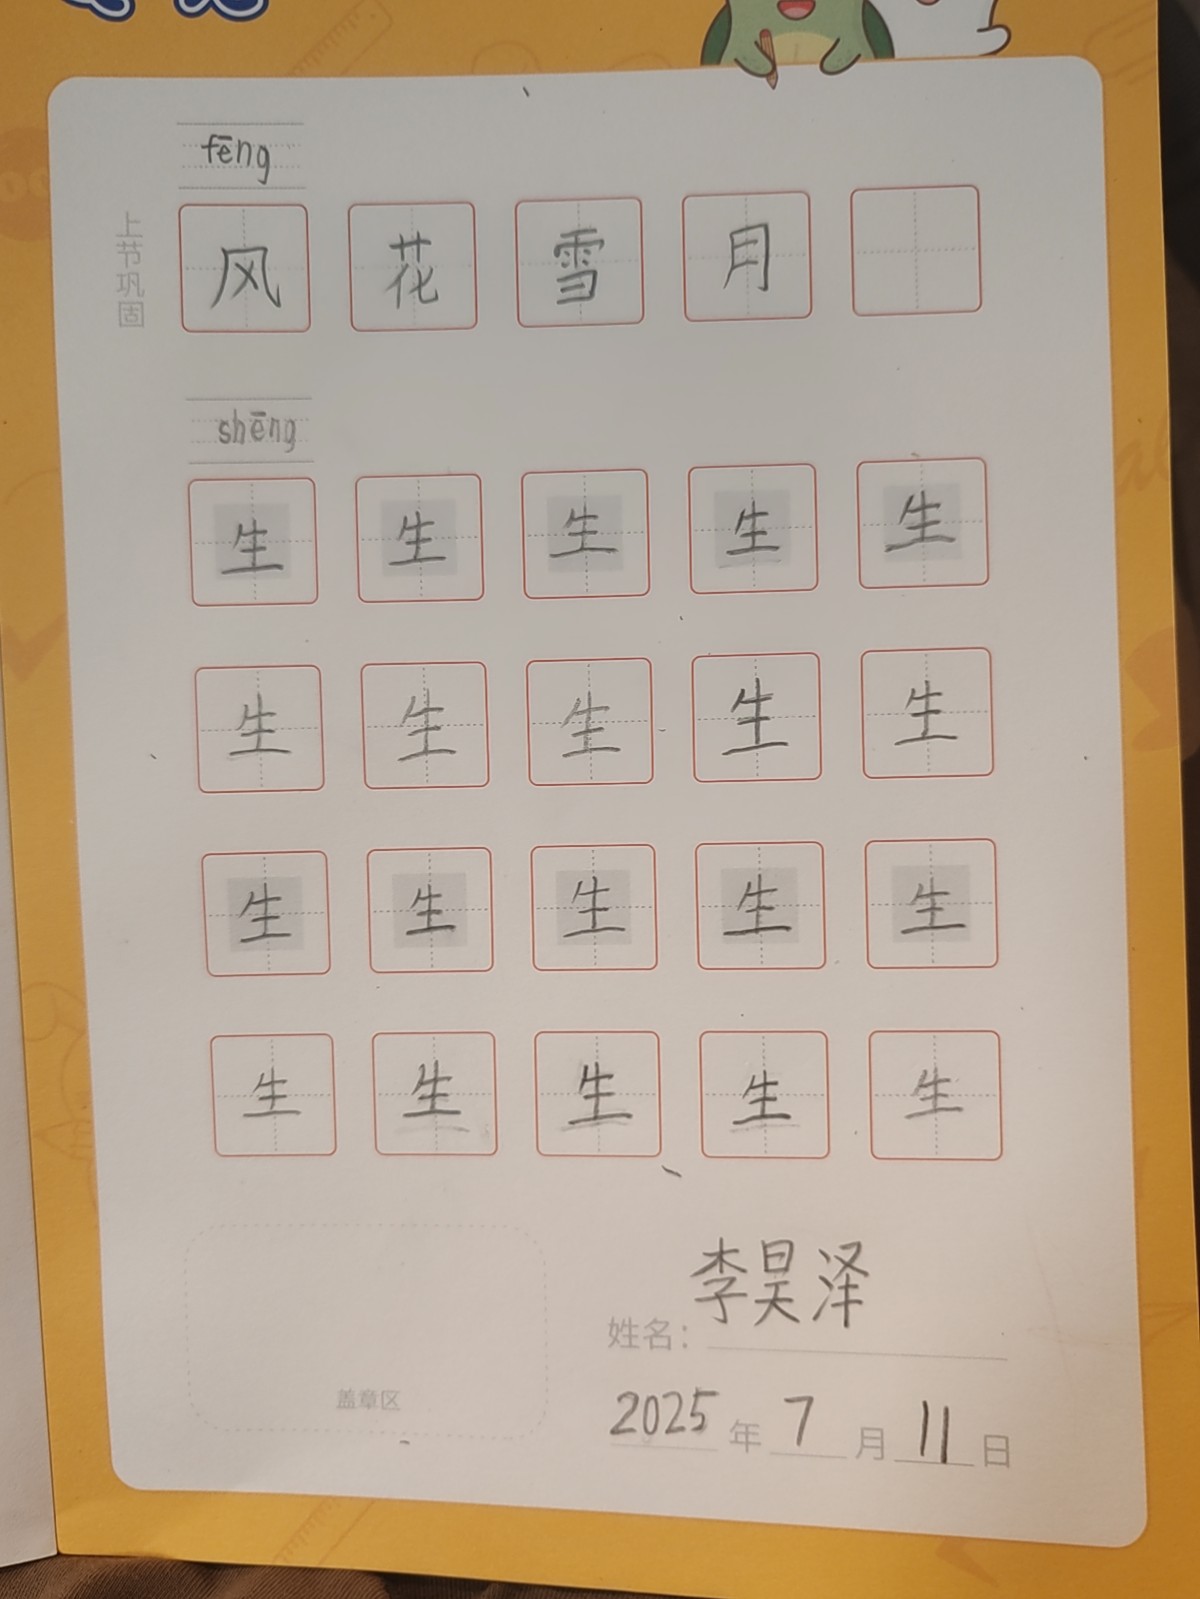 fēng
上节巩固
风 花 雪 月
shēng
生 生 生 生 生
生 生 生 生 生
生 生 生 生 生
生 生 生 生 生
李昊泽
姓名：
盖章区
2025 年 7 月 11 日